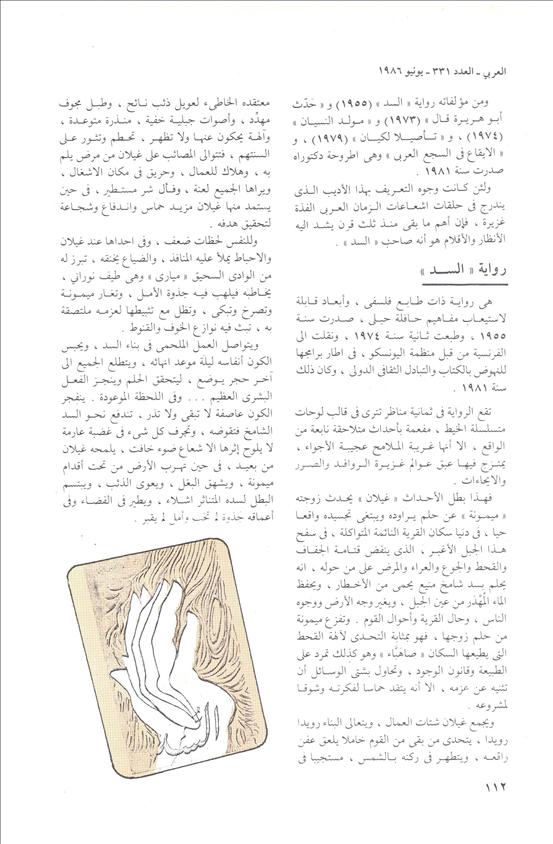 العربي - العدد ٣٣١ - يونيو ١٩٨٦
ومن مؤلفاته رواية « السد » (١٩٥٥) و « حدّث
أبو هريرة قال » (١٩٧٣) و « مولد النسيان »
(١٩٧٤) ، و « تأصيلا لكيان » (١٩٧٩) ، و
« الايقاع في السجع العربي » وهي اطروحة دكتوراه
صدرت سنة ١٩٨١ .
ولئن كانت وجوه التعريف بهذا الأديب الذي
يندرج في حلقات اشعاعات الزمان العربي الفذة
غزيرة ، فإن أهم ما بقي منذ ثلث قرن يشد اليه
الأنظار والأقلام هو أنه صاحب « السد » .
رواية « الســد »
هي رواية ذات طابع فلسفي ، وأبعاد قابلة
لاستيعاب مفاهيم حافلة حبلى ، صدرت سنة
١٩٥٥ ، وطبعت ثانية سنة ١٩٧٤ ، ونقلت الى
الفرنسية من قبل منظمة اليونسكو ، في اطار برامجها
للنهوض بالكتاب والتبادل الثقافي الدولي ، وكان ذلك
سنة ١٩٨١ .
تقع الرواية في ثمانية مناظر تترى في قالب لوحات
متسلسلة الخيط ، مفعمة بأحداث متلاحقة نابعة من
الواقع ، الا أنها غريبة الملامح عجيبة الأجواء ،
يمتزج فيها عبق عوالم غزيرة الروافد والصور
والايحاءات .
فهذا بطل الأحداث « غيلان » يحدث زوجته
« ميمونة » عن حلم يراوده ويبتغي تجسيده واقعا
حيا ، في دنيا سكان القرية النائمة المتواكلة ، في سفح
هذا الجبل الأغبر ، الذي ينفض قتامة الجفاف
والقحط والجوع والعراء والمرض على من حوله ، انه
يحلم بسد شامخ منيع يحمي من الأخطار ، ويحفظ
الماء المُهْدَر من عين الجبل ، ويغير وجه الأرض ووجوه
الناس ، وحال القرية وأحوال القوم . وتفزع ميمونة
من حلم زوجها ، فهو بمثابة التحدي لآلهة القحط
التي يطيعها السكان « صاهبّاء » وهو كذلك تمرد على
الطبيعة وقانون الوجود ، وتحاول بشتى الوسائل أن
تثنيه عن عزمه ، الا أنه يتقد حماسا لفكرته وشوقا
لمشروعه .
ويجمع غيلان شتات العمال ، ويتعالى البناء رويدا
رويدا ، يتحدى من بقي من القوم خاملا يلعق عفن
واقعه ، ويتطهر في ركنه بالشمس ، مستجيبا في
معتقده الخاطىء لعويل ذئب نائح ، وطبل مجوف
مهدّد ، وأصوات جبلية خفية ، منذرة متوعدة ،
وآلهة يحكون عنها ولا تظهر ، تحطم وتثور على
السنتهم ، فتتوالى المصائب على غيلان من مرض يلم
به ، وهلاك للعمال ، وحريق في مكان الاشغال ،
ويراها الجميع لعنة ، وفأل شر مستطير ، في حين
يستمد منها غيلان مزيد حماس واندفاع وشجاعة
لتحقيق هدفه .
وللنفس لحظات ضعف ، وفي احداها عند غيلان
والاحباط يملأ عليه المنافذ ، والضياع يخنقه ، تبرز له
من الوادي السحيق « مياري » وهي طيف نوراني ،
يخاطبه فيلهب فيه جذوة الأمل ، وتغار ميمونة
وتصرخ وتبكي ، وتظل مع تثبيطها لعزمه ملتصقة
به ، تبث فيه نوازع الخوف والقنوط .
ويتواصل العمل الملحمي في بناء السد ، ويحبس
الكون أنفاسه ليلة موعد انهائه ، ويتطلع الجميع الى
آخر حجر يوضع ، ليتحقق الحلم وينجز الفعل
البشري العظيم ... وفي اللحظة الموعودة . ينفجر
الكون عاصفة لا تبقي ولا تذر ، تندفع نحو السد
الشامخ فتقوضه ، وتجرف كل شيء في غضبة عارمة
لا يلوح إثرها الا شعاع ضوء خافت ، يلمحه غيلان
من بعيد ، في حين تهرب الأرض من تحت أقدام
ميمونة ، ويشهق البغل ، ويعوي الذئب ، ويبتسم
البطل لسده المتناثر اشلاء ، ويطير في الفضاء وفي
أعماقه جذوة لم تخب وأمل لم يقبر .
١١٢